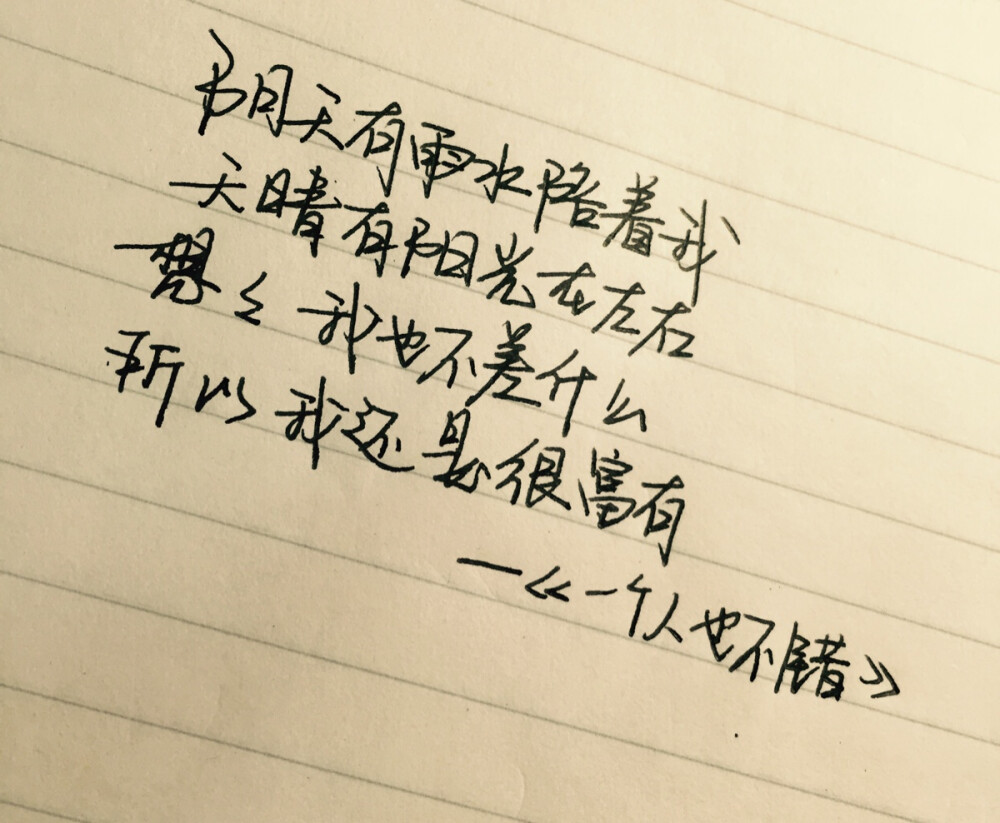 阴天有雨水陪着我
天晴有阳光在左右
想想我也不差什么
所以我还是很富有
—《一个人也不错》